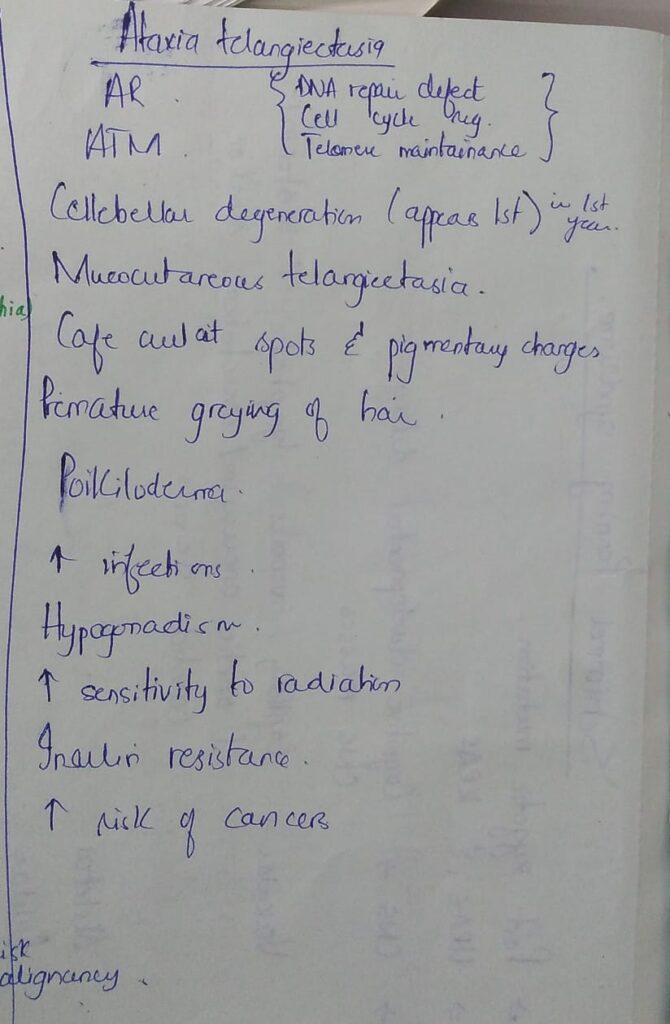 Ataxia telangiectasia
AR.
{ DNA repair defect
Cell cycle reg. }
ATM.
Telomere maintainance
Cellebellar degeneration (appears 1st) in 1st year.
Mucocutaneous telangiectasia.
hia)
Cafe aulait spots & pigmentary changes
Premature greying of hair.
Poilkiloderma.
↑ infections.
Hypogonadism.
↑ sensitivity to radiation
Insulin resistance.
↑ risk of cancers
isk
alignancy.